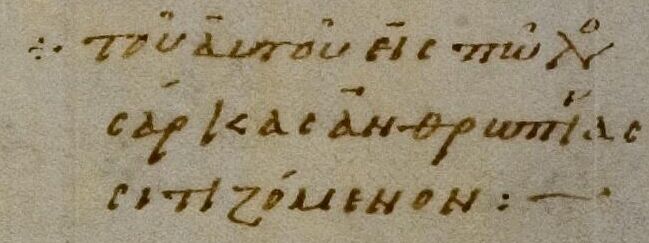 ⁖ τοῦ ἀυτοῦ εἰς πῶλο
σάρκας ἀνθρωπίας
σιτιζόμενον : —